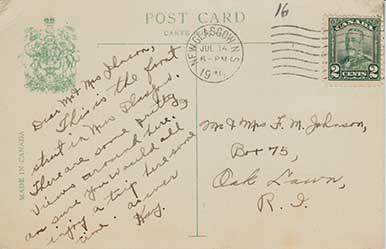 POST CARD
CARTE
16
NEW GLASGOW N.S.
JUL 14
6-PM
19
CANADA
2 CENTS 2
MADE IN CANADA
Dear Mr & Mrs Johnson,
This is the front
street in New Glasgow.
There are some pretty
views around here.
am sure you would all
enjoy a trip here some
time.
Kay.
Mr & Mrs F. M. Johnson,
Box 75,
Oak Lawn,
R. I.